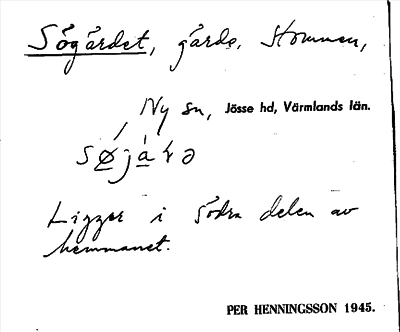 Sögärdet, gärde, Stommen,
Ny sn, Jösse hd, Värmlands län.
Ligger i södra delen av
hemmanet.
PER HENNINGSSON 1945.